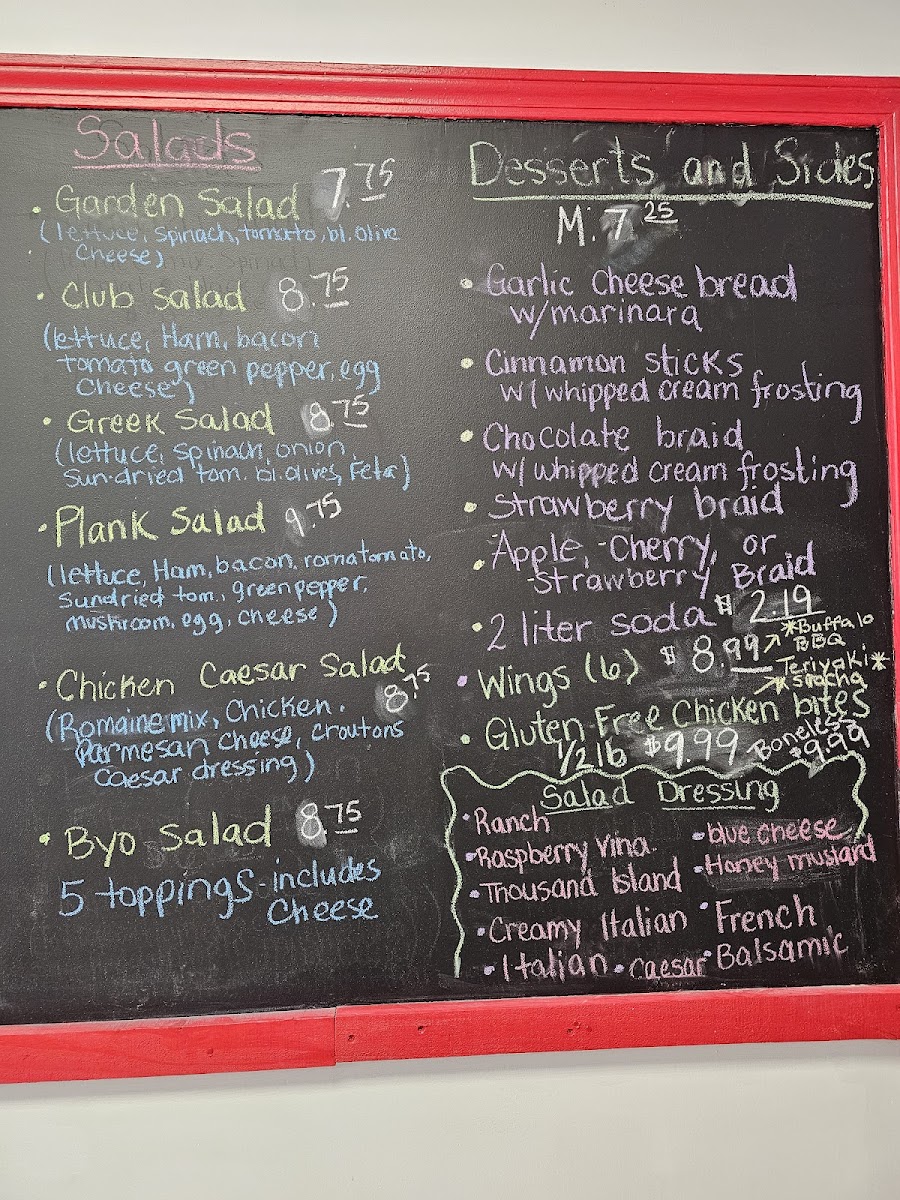 Salads
• Garden Salad 7.75
(lettuce, spinach, tomato, bl. Olive
Cheese)
• Club salad 8.75
(lettuce, Ham, bacon
tomato green pepper, egg
Cheese)
• Greek Salad 8.75
(lettuce, spinach, onion,
Sun-dried tom. bl. olives, Feta)
• Plank Salad 9.75
(lettuce, Ham, bacon, roma tomato,
Sundried tom., green pepper,
mushroom, egg, cheese)
• Chicken Caesar Salad
8.75
(Romaine mix, Chicken.
Parmesan cheese, croutons
Caesar dressing)
• Byo Salad 8.75
5 toppings-includes
Cheese
Desserts and Sides
M. 7.25
• Garlic cheese bread
w/marinara
• Cinnamon sticks
w/ whipped cream frosting
• Chocolate braid
w/ whipped cream frosting
• Strawberry braid
• -Apple, -Cherry, or
-Strawberry Braid
• 2 liter soda $ 2.19
• Wings (6) $ 8.99
*Buffalo
BBQ
Teriyaki*
*
• Gluten-Free Chicken bites
1/2 lb $9.99 Boneless
$9.99
Salad Dressing
• Ranch
• Raspberry Vina.
• Thousand Island
• Creamy Italian
• Italian • Caesar
• blue cheese
• Honey mustard
• French
• Balsamic